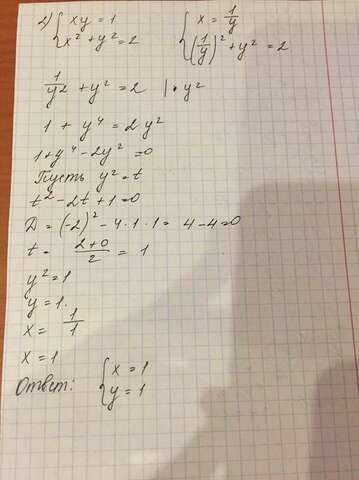 2) { xy = 1 { x = 1/y
x² + y² = 2 (1/y)² + y² = 2
1/y² + y² = 2 | • y²
1 + y⁴ = 2y²
1 + y⁴ - 2y² = 0
Пусть y² = t
t² - 2t + 1 = 0
D = (-2)² - 4 · 1 · 1 = 4 - 4 = 0
t = (2+0)/2 = 1
y² = 1
y = 1.
x = 1/1
x = 1
Ответ: { x = 1
y = 1